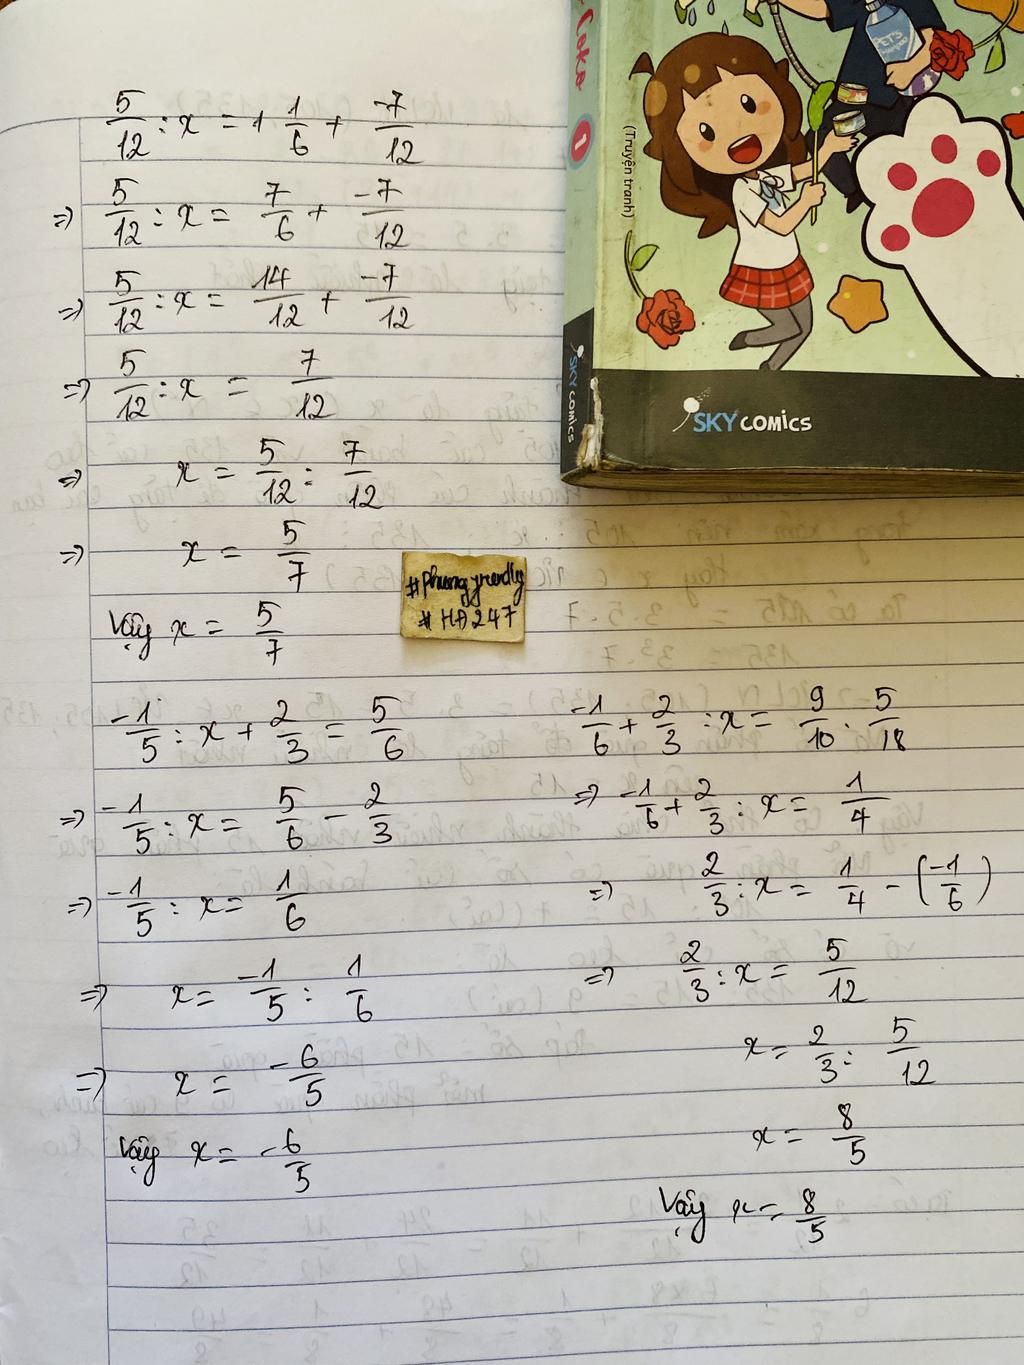 5/12 : x = 1 1/6 + -7/12
=> 5/12 : x = 7/6 + -7/12
=> 5/12 : x = 14/12 + -7/12
=> 5/12 : x = 7/12
=> x = 5/12 : 7/12
=> x = 5/7
Vậy x = 5/7
-1/5 : x + 2/3 = 5/6
=> -1/5 : x = 5/6 - 2/3
=> -1/5 : x = 1/6
=> x = -1/5 : 1/6
=> x = -6/5
Vậy x = -6/5
-1/6 + 2/3 : x = 9/10 . 5/18
=> -1/6 + 2/3 : x = 1/4
=> 2/3 : x = 1/4 - (-1/6)
=> 2/3 : x = 5/12
x = 2/3 : 5/12
x = 8/5
Vậy x = 8/5
# HĐ247
Coko
1
(Truyện tranh)
PET'S
SKY COMICS
SKY COMICS